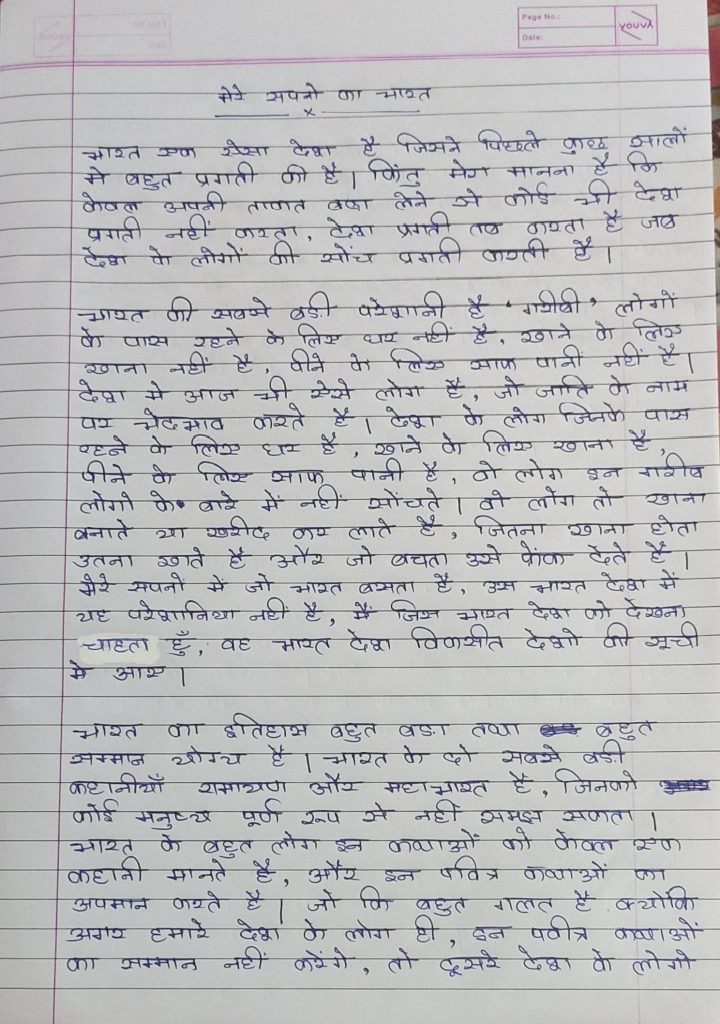 Page No.:
Date:
YOUVA
मेरे सपनो का भारत
x
भारत एक ऐसा देश है जिसने पिछले कुछ सालों
मे बहुत प्रगती की है। किंतु मेरा मानना है कि
केवल अपनी ताकत बढा लेने से कोई भी देश
प्रगती नहीं करता, देश प्रगती तब करता है जब
देश के लोगों की सोंच प्रगती करती है।
भारत की सबसे बडी परेशानी है 'गरीबी' लोगों
के पास रहने के लिए घर नहीं है, खाने के लिए
खाना नहीं है, पीने के लिए साफ पानी नहीं है।
देश मे आज भी ऐसे लोग है, जो जाति के नाम
पर भेदभाव करते है। देश के लोग जिनके पास
रहने के लिए घर है, खाने के लिए खाना है,
पीने के लिए साफ पानी है, वो लोग इन गरीब
लोगो के बारे में नहीं सोंचते। वो लोग तो खाना
बनाते या खरीद कर लाते है, जितना खाना होता
उतना खाते है और जो बचता उसे फेंक देते है।
मेरे सपनों में जो भारत बसता है, उस भारत देश में
यह परेशानिया नहीं है, मैं जिस भारत देश को देखना
चाहता हुँ, वह भारत देश विकसीत देशो की सूची
मे आए।
भारत का इतिहास बहुत बडा तथा बहुत
सम्मान योग्य है। भारत के दो सबसे बडी
कहानीयाँ रामायण और महाभारत है, जिनको
कोई मनुष्य पूर्ण रूप से नहीं समझ सकता।
भारत के बहुत लोग इन कथाओं को केवल एक
कहानी मानते है, और इन पवित्र कथाओं का
अपमान करते है। जो कि बहुत गलत है क्योकि
अगर हमारे देश के लोग ही, इन पवीत्र कथाओं
का सम्मान नहीं करेंगे, तो दूसरे देश के लोगो